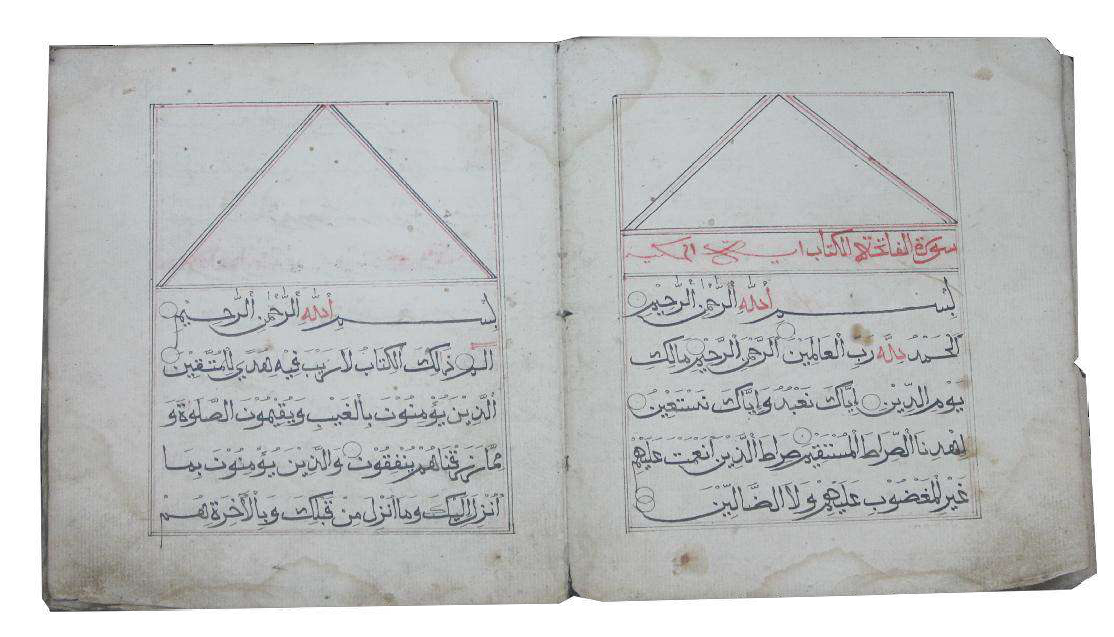 سورة الفاتحة الكتاب
بِسْمِ أَللّٰهِ أَلرَّحْمٰنِ أَلرَّحِيْمِ
اَلْحَمْدُ لِلّٰهِ رَبِّ الْعَالَمِيْنَ اَلرَّحْمٰنِ الرَّحِيْمِ مَالِكِ
يَوْمِ الدِّيْنِ اِيَّاكَ نَعْبُدُ وَاِيَّاكَ نَسْتَعِيْنُ
اِهْدِنَا الصِّرَاطَ الْمُسْتَقِيْمَ صِرَاطَ الَّذِيْنَ اَنْعَمْتَ عَلَيْهِمْ
غَيْرِ الْمَغْضُوْبِ عَلَيْهِمْ وَلَا الضَّالِّيْنَ
بِسْمِ أَللّٰهِ أَلرَّحْمٰنِ أَلرَّحِيْمِ
الم ذٰلِكَ الْكِتَابُ لَا رَيْبَ فِيْهِ هُدًى لِلْمُتَّقِيْنَ
اَلَّذِيْنَ يُؤْمِنُوْنَ بِالْغَيْبِ وَيُقِيْمُوْنَ الصَّلٰوةَ وَ
مِمَّا رَزَقْنَاهُمْ يُنْفِقُوْنَ وَالَّذِيْنَ يُؤْمِنُوْنَ بِمَا
اُنْزِلَ اِلَيْكَ وَمَا اُنْزِلَ مِنْ قَبْلِكَ وَبِالْاٰخِرَةِ هُمْ